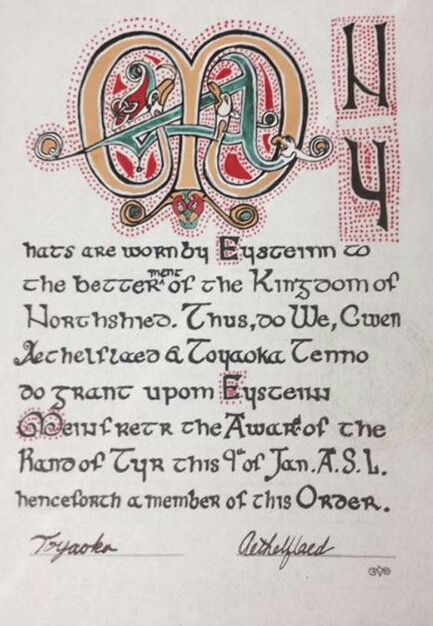 MANY
hats are worn by Eysteinn to
the betterment of the Kingdom of
Northshied. Thus, do We, Cwen
Aethelflaed & Toyaoka Tenno
do grant upon Eysteinn
Meinfretr the Award of the
Hand of Tyr this 9th of Jan. A.S. L.
henceforth a member of this Order.
Toyaoka Aethelflaed